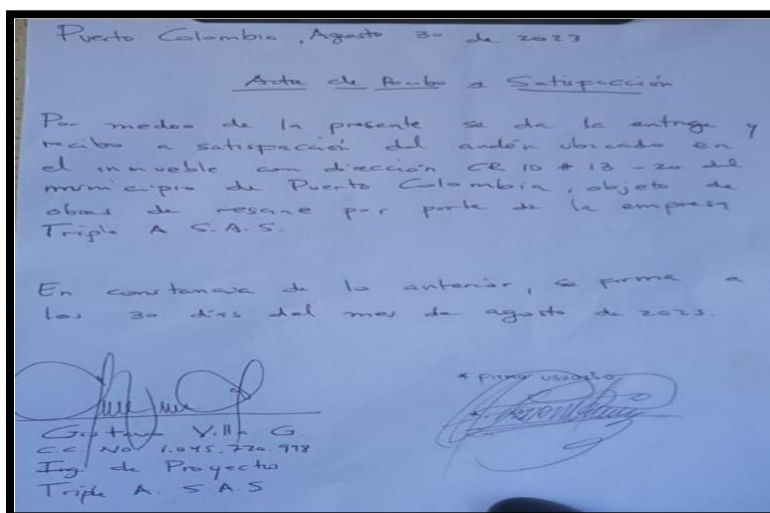 Puerto Colombia, Agosto 30 de 2023
Acta de Recibo a Satisfacción
Por medio de la presente se da la entrega y
recibo a satisfacción del andén ubicado en
el inmueble con dirección CR 10 # 13 - 20 del
municipio de Puerto Colombia, objeto de
obras de resane por parte de la empresa
Triple A S.A.S.
En constancia de lo anterior, se firma a
los 30 días del mes de agosto de 2023.
* Firma usuario
Gustavo Villa G.
C.C. No 1.045.720.998
Ing. de Proyectos
Triple A. S.A.S